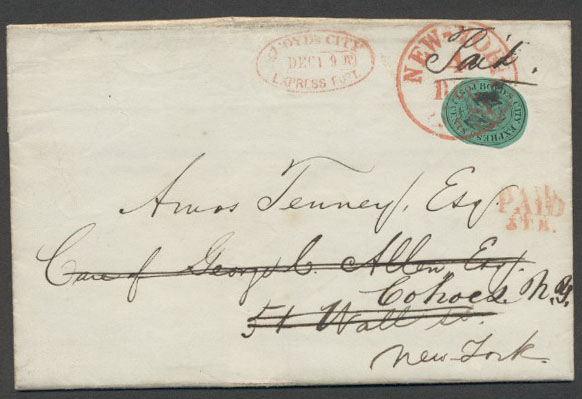 BOYD'S CITY
DEC 19
EXPRESS POST
NEW-YORK
Paid.
BOYD'S CITY EXPRESS
Amos Tenney, Esq.
PAID
Care of George C. Allen Esq.
Cohoes. N.Y.
51 Wall St.
New-York.